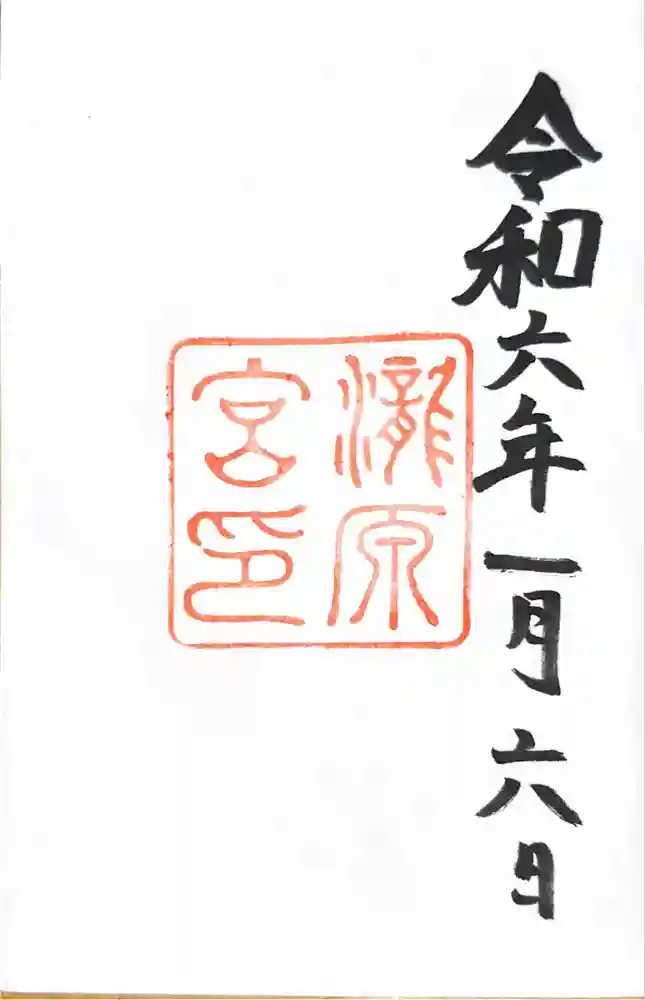 令和六年一月六日
瀧原
宮印